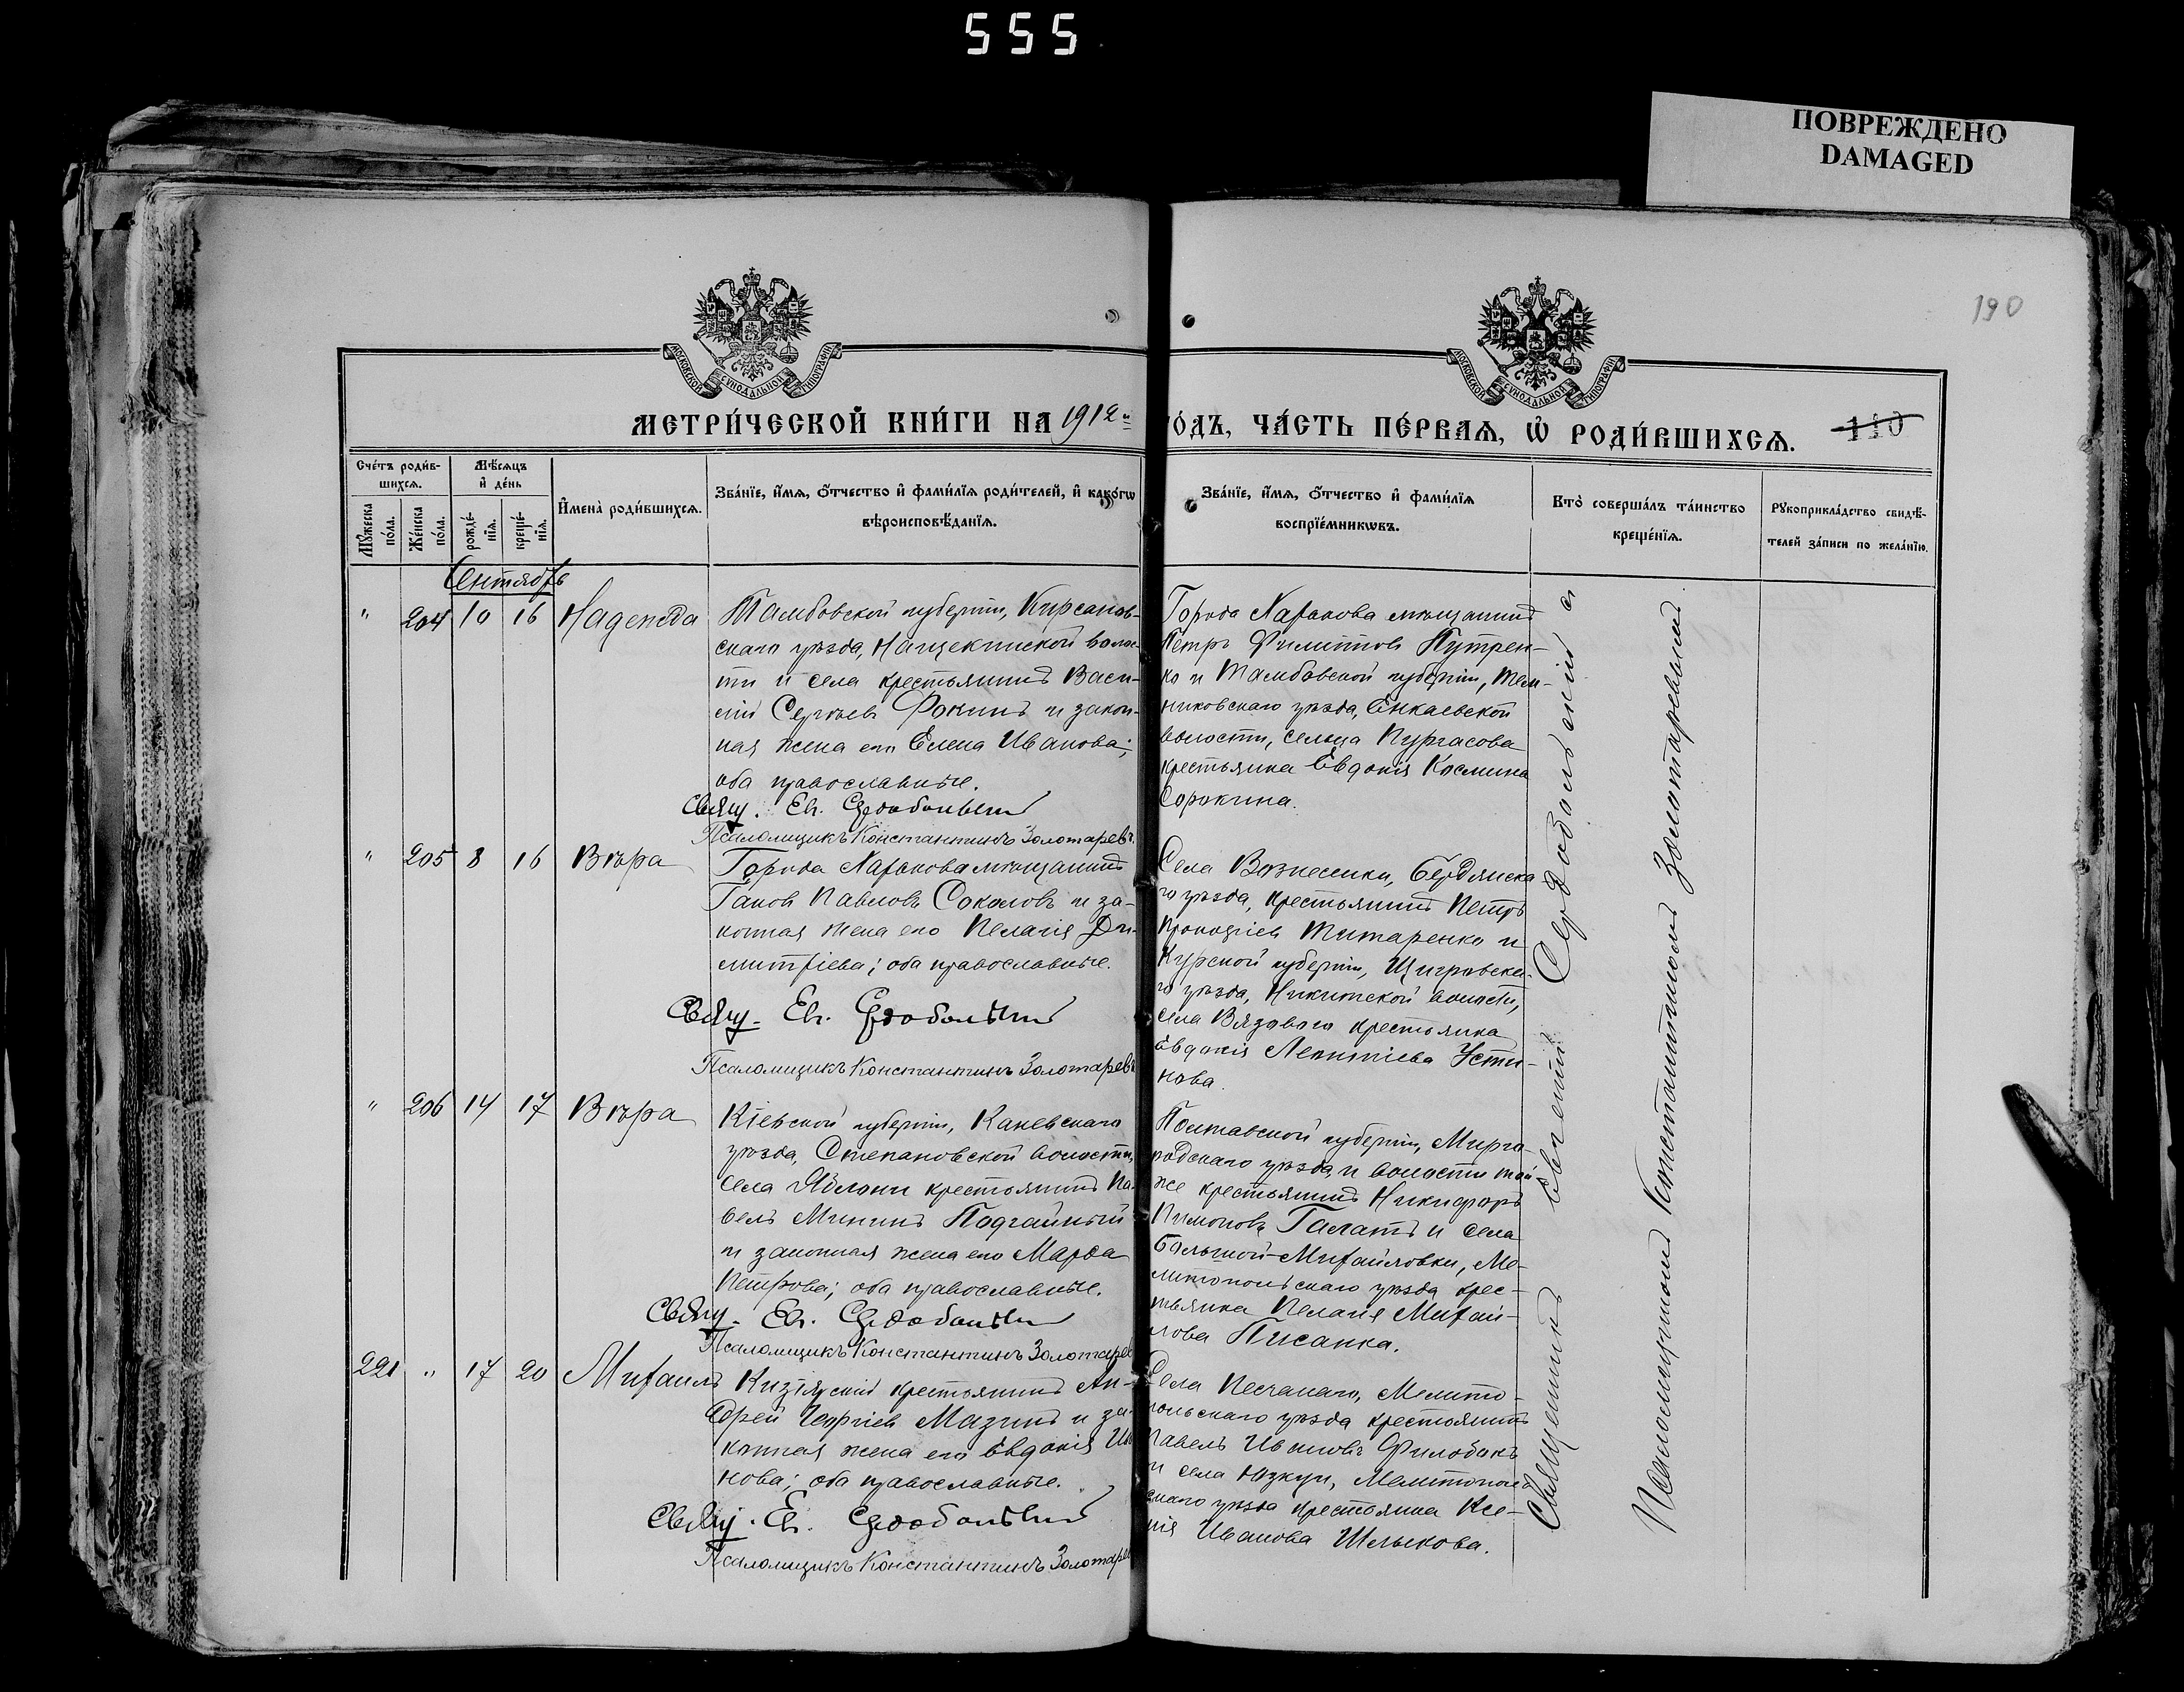 555
ПОВРЕЖДЕНО
DAMAGED
190
МОСКОВСКОЙ СѴНОДАЛЬНОЙ ТИПОГРАФІИ
МОСКОВСКОЙ СѴНОДАЛЬНОЙ ТИПОГРАФІИ
МЕТРИ́ЧЕСКОЙ КНИ́ГИ НА 1912й
ГО́ДЪ, ЧА́СТЬ ПЕ́РВАѦ, Ѡ҆ РОДИ́ВШИХСѦ.
110
Сче́тъ роди́в-
шихся.
Мѣ́сяцъ
и҆ де́нь
Мꙋ́жеска
по́ла.
Же́нска
по́ла.
рожде́-
нїѧ.
креще́-
нїѧ.
И҆мена̀ роди́вшихсѧ.
Зва́нїе, и҆́мѧ, ѻ҆́тчество и҆ фами́лїѧ роди́телей, и҆ како́гѡ
вѣроисповѣ́данїѧ.
Зва́нїе, и҆́мѧ, ѻ҆́тчество и҆ фами́лїѧ
воспрїе́мникѡвъ.
Кто̀ соверша́лъ та́инство
креще́нїѧ.
Рꙋкоприкла́дство свидѣ́-
телей за́писи по жела́нїю.
Сентябрь
" 204 10 16 Надежда
Тамбовской губерніи, Кирсанов-
скаго уѣзда, Нащекинской волос-
ти и села крестьянинъ Васи-
лій Сергѣевъ Фокинъ и закон-
ная жена его Елена Иванова;
оба православные.
Свящ. Ев. Сердобольскій
Псаломщикъ Константинъ Золотаревъ
Города Харькова мѣщанинъ
Петръ Филипповъ
ко и Тамбовской губерніи, Тем-
никовскаго уѣзда, Енкаевской
волости, сельца Пургасова
крестьянка Евдокія Космина
Сорокина.
" 205 8 16 Вѣра
Города Харькова мѣщанинъ
Іаковъ Павловъ Соколовъ и за-
конная жена его Пелагія Ди-
митріева; оба православные.
Свящ. Ев. Сердобольскій
Псаломщикъ Константинъ Золотаревъ
Села Вознесенки, Бердянска-
го уѣзда, крестьянинъ Петръ
Прокопіевъ Титаренко и
Курской губерніи, Щигровска-
го уѣзда, Никитской волости,
села Вязового крестьянка
Евдокія Леонтіева Усти-
нова.
" 206 14 17 Вѣра
Кіевской губерніи, Каневскаго
уѣзда, Степановской волости,
села Яблони крестьянинъ Па-
велъ Мининъ Подгайный
и законная жена его Марѳа
Петрова; оба православные.
Свящ. Ев. Сердобольскій
Псаломщикъ Константинъ Золотарев
Полтавской губерніи, Мирго-
родскаго уѣзда и волости той-
же крестьянинъ Никифоръ
Пимоновъ Галатъ и села
Большой-Михайловки, Ме-
литопольскаго уѣзда крес-
тьянка Пелагія Михай-
лова Писанка.
221 " 17 20 Михаилъ
Кизіярскій крестьянинъ Ан-
дрей Георгіевъ Мазинъ и за-
конная жена его Евдокія Ива
нова; оба православные.
Свящ. Ев. Сердобольскій
Псаломщикъ Константинъ Золотарев
Села Песчанаго, Мелито-
польскаго уѣзда крестьянинъ
Павелъ Ивановъ Филобокъ
и села Юзкуи, Мелитополь-
скаго уѣзда крестьянка Ксе-
нія Иванова Шлыкова.
Священникъ Евгеній Сердобольскій съ
Псаломщикомъ Константиномъ Золотаревымъ